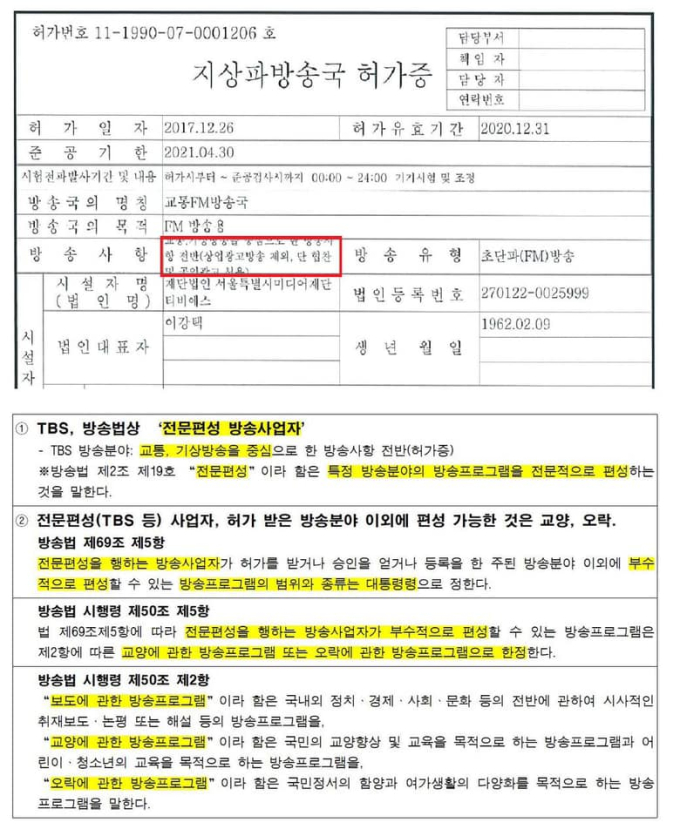 허가번호 11-1990-07-0001206 호
지상파방송국 허가증
담당부서
책 임 자
담 당 자
연락번호
허 가 일 자 2017.12.26 허 가 유 효 기 간 2020.12.31
준 공 기 한 2021.04.30
시험전파발사기간 및 내용 허가시부터 ~ 준공검사시까지 00:00 ~ 24:00 기기시험 및 조정
방 송 국 의 명 칭 교통FM방송국
방 송 국 의 목 적 FM 방송용
방 송 사 항 교통,기상방송을 중심으로 한 방송사
항 전반(상업광고방송 제외, 단 협찬
및 공익광고 허용)
방 송 유 형 초단파(FM)방송
시 설 자
시 설 자 명
(법 인 명)
재단법인 서울특별시미디어재단
티비에스
법 인 등 록 번 호 270122-0025999
법 인 대 표 자 이강택 생 년 월 일 1962.02.09
① TBS, 방송법상 ‘전문편성 방송사업자’
- TBS 방송분야: 교통, 기상방송을 중심으로 한 방송사항 전반(허가증)
※방송법 제2조 제19호 “전문편성”이라 함은 특정 방송분야의 방송프로그램을 전문적으로 편성하는
것을 말한다.
② 전문편성(TBS 등) 사업자, 허가 받은 방송분야 이외에 편성 가능한 것은 교양, 오락.
방송법 제69조 제5항
전문편성을 행하는 방송사업자가 허가를 받거나 승인을 얻거나 등록을 한 주된 방송분야 이외에 부수
적으로 편성할 수 있는 방송프로그램의 범위와 종류는 대통령령으로 정한다.
방송법 시행령 제50조 제5항
법 제69조제5항에 따라 전문편성을 행하는 방송사업자가 부수적으로 편성할 수 있는 방송프로그램은
제2항에 따른 교양에 관한 방송프로그램 또는 오락에 관한 방송프로그램으로 한정한다.
방송법 시행령 제50조 제2항
“보도에 관한 방송프로그램”이라 함은 국내외 정치·경제·사회·문화 등의 전반에 관하여 시사적인
취재보도·논평 또는 해설 등의 방송프로그램을,
“교양에 관한 방송프로그램”이라 함은 국민의 교양향상 및 교육을 목적으로 하는 방송프로그램과 어
린이·청소년의 교육을 목적으로 하는 방송프로그램을,
“오락에 관한 방송프로그램”이라 함은 국민정서의 함양과 여가생활의 다양화를 목적으로 하는 방송
프로그램을 말한다.